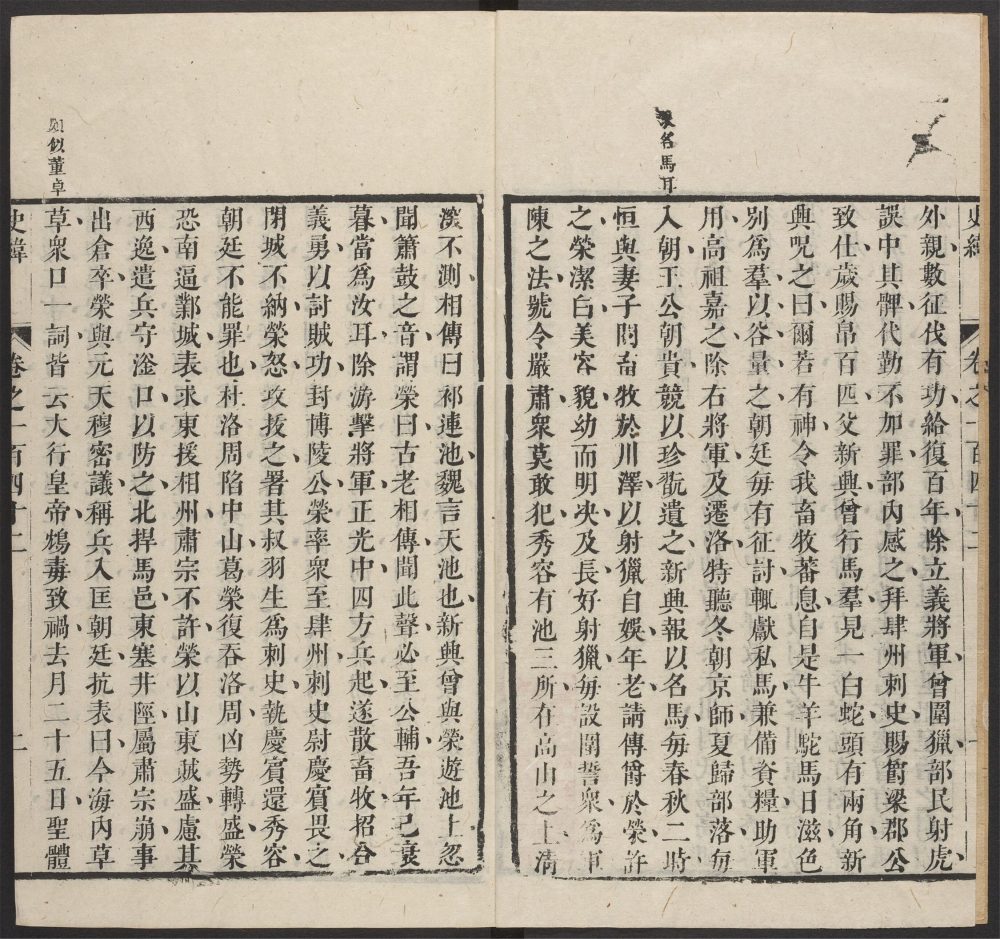 外親數征伐有功給復百年除立義將軍曾圍獵部民射虎
誤中其髀代勤不加罪部內感之拜肆州刺史賜爵梁郡公
致仕歲賜帛百匹父新興曾行馬羣見一白蛇頭有兩角新
興呪之曰爾若有神令我畜牧蕃息自是牛羊駝馬日滋色
別爲羣以谷量之朝廷每有征討輒獻私馬兼備資糧助軍
用高祖嘉之除右將軍及遷洛特聽冬朝京師夏歸部落每
入朝王公朝貴競以珍翫遺之新興報以名馬每春秋二時
恒與妻子閱畜牧於川澤以射獵自娛年老請傳爵於榮許
之榮潔白美容貌幼而明決及長好射獵每設圍誓衆爲軍
陳之法號令嚴肅衆莫敢犯秀容有池三所在高山之上清
深不測相傳曰祁連池魏言天池也新興曾與榮遊池上忽
聞簫鼓之音謂榮曰古老相傳聞此聲必至公輔吾年已衰
暮當爲汝耳除游擊將軍正光中四方兵起遂散畜牧招合
義勇以討賊功封博陵公榮率衆至肆州刺史尉慶賓畏之
閉城不納榮怒攻拔之署其叔羽生爲刺史執慶賓還秀容
朝廷不能罪也杜洛周陷中山葛榮復吞洛周凶勢轉盛榮
恐南逼鄴城表求東援相州肅宗不許榮以山東賊盛慮其
西逸遣兵守滏口以防之北捍馬邑東塞井陘屬肅宗崩事
出倉卒榮與元天穆密議稱兵入匡朝廷抗表曰今海內草
草衆口一詞皆云大行皇帝鴆毒致禍去月二十五日聖體
史緯
卷之一百四十二
一
名馬耳
似董卓
史緯
卷之一百四十二
二